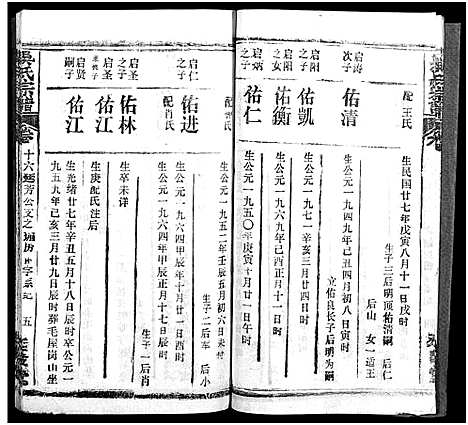 配王氏
生民国廿七年戊寅八月十一日戌时
生子三后明顶佑清嗣 后仁
后山 女一适王
启涛次子
佑清
生公元一九四九年己丑四月初八日寅时
立佑良长子后明为嗣
启阳之子
佑凯
生公元一九七一年辛亥三月廿一日寅时
启阴之女
佑衡
生公元一九六九年己酉正月十一时
启炳之子
佑仁
生公元一九五〇年庚寅十月十一日午时
配肖氏
生公元一九五二年壬辰五月初六日未时
生子二后车 后小
启仁之子
佑进
生公元一九六四年甲辰年十一日酉时
配肖氏
生公元一九六四年甲辰正月十七日辰时
生子一后肖
启圣之子
佑林
生卒未详
启圣子
启贤嗣子
佑江
生庚配氏注后
生光绪廿七年辛丑五月十八日辰时卒公元一
九五九年己亥三月廿九日辰时葬毛屋岗山坐
吴氏宗谱
十六
芳公文之
五